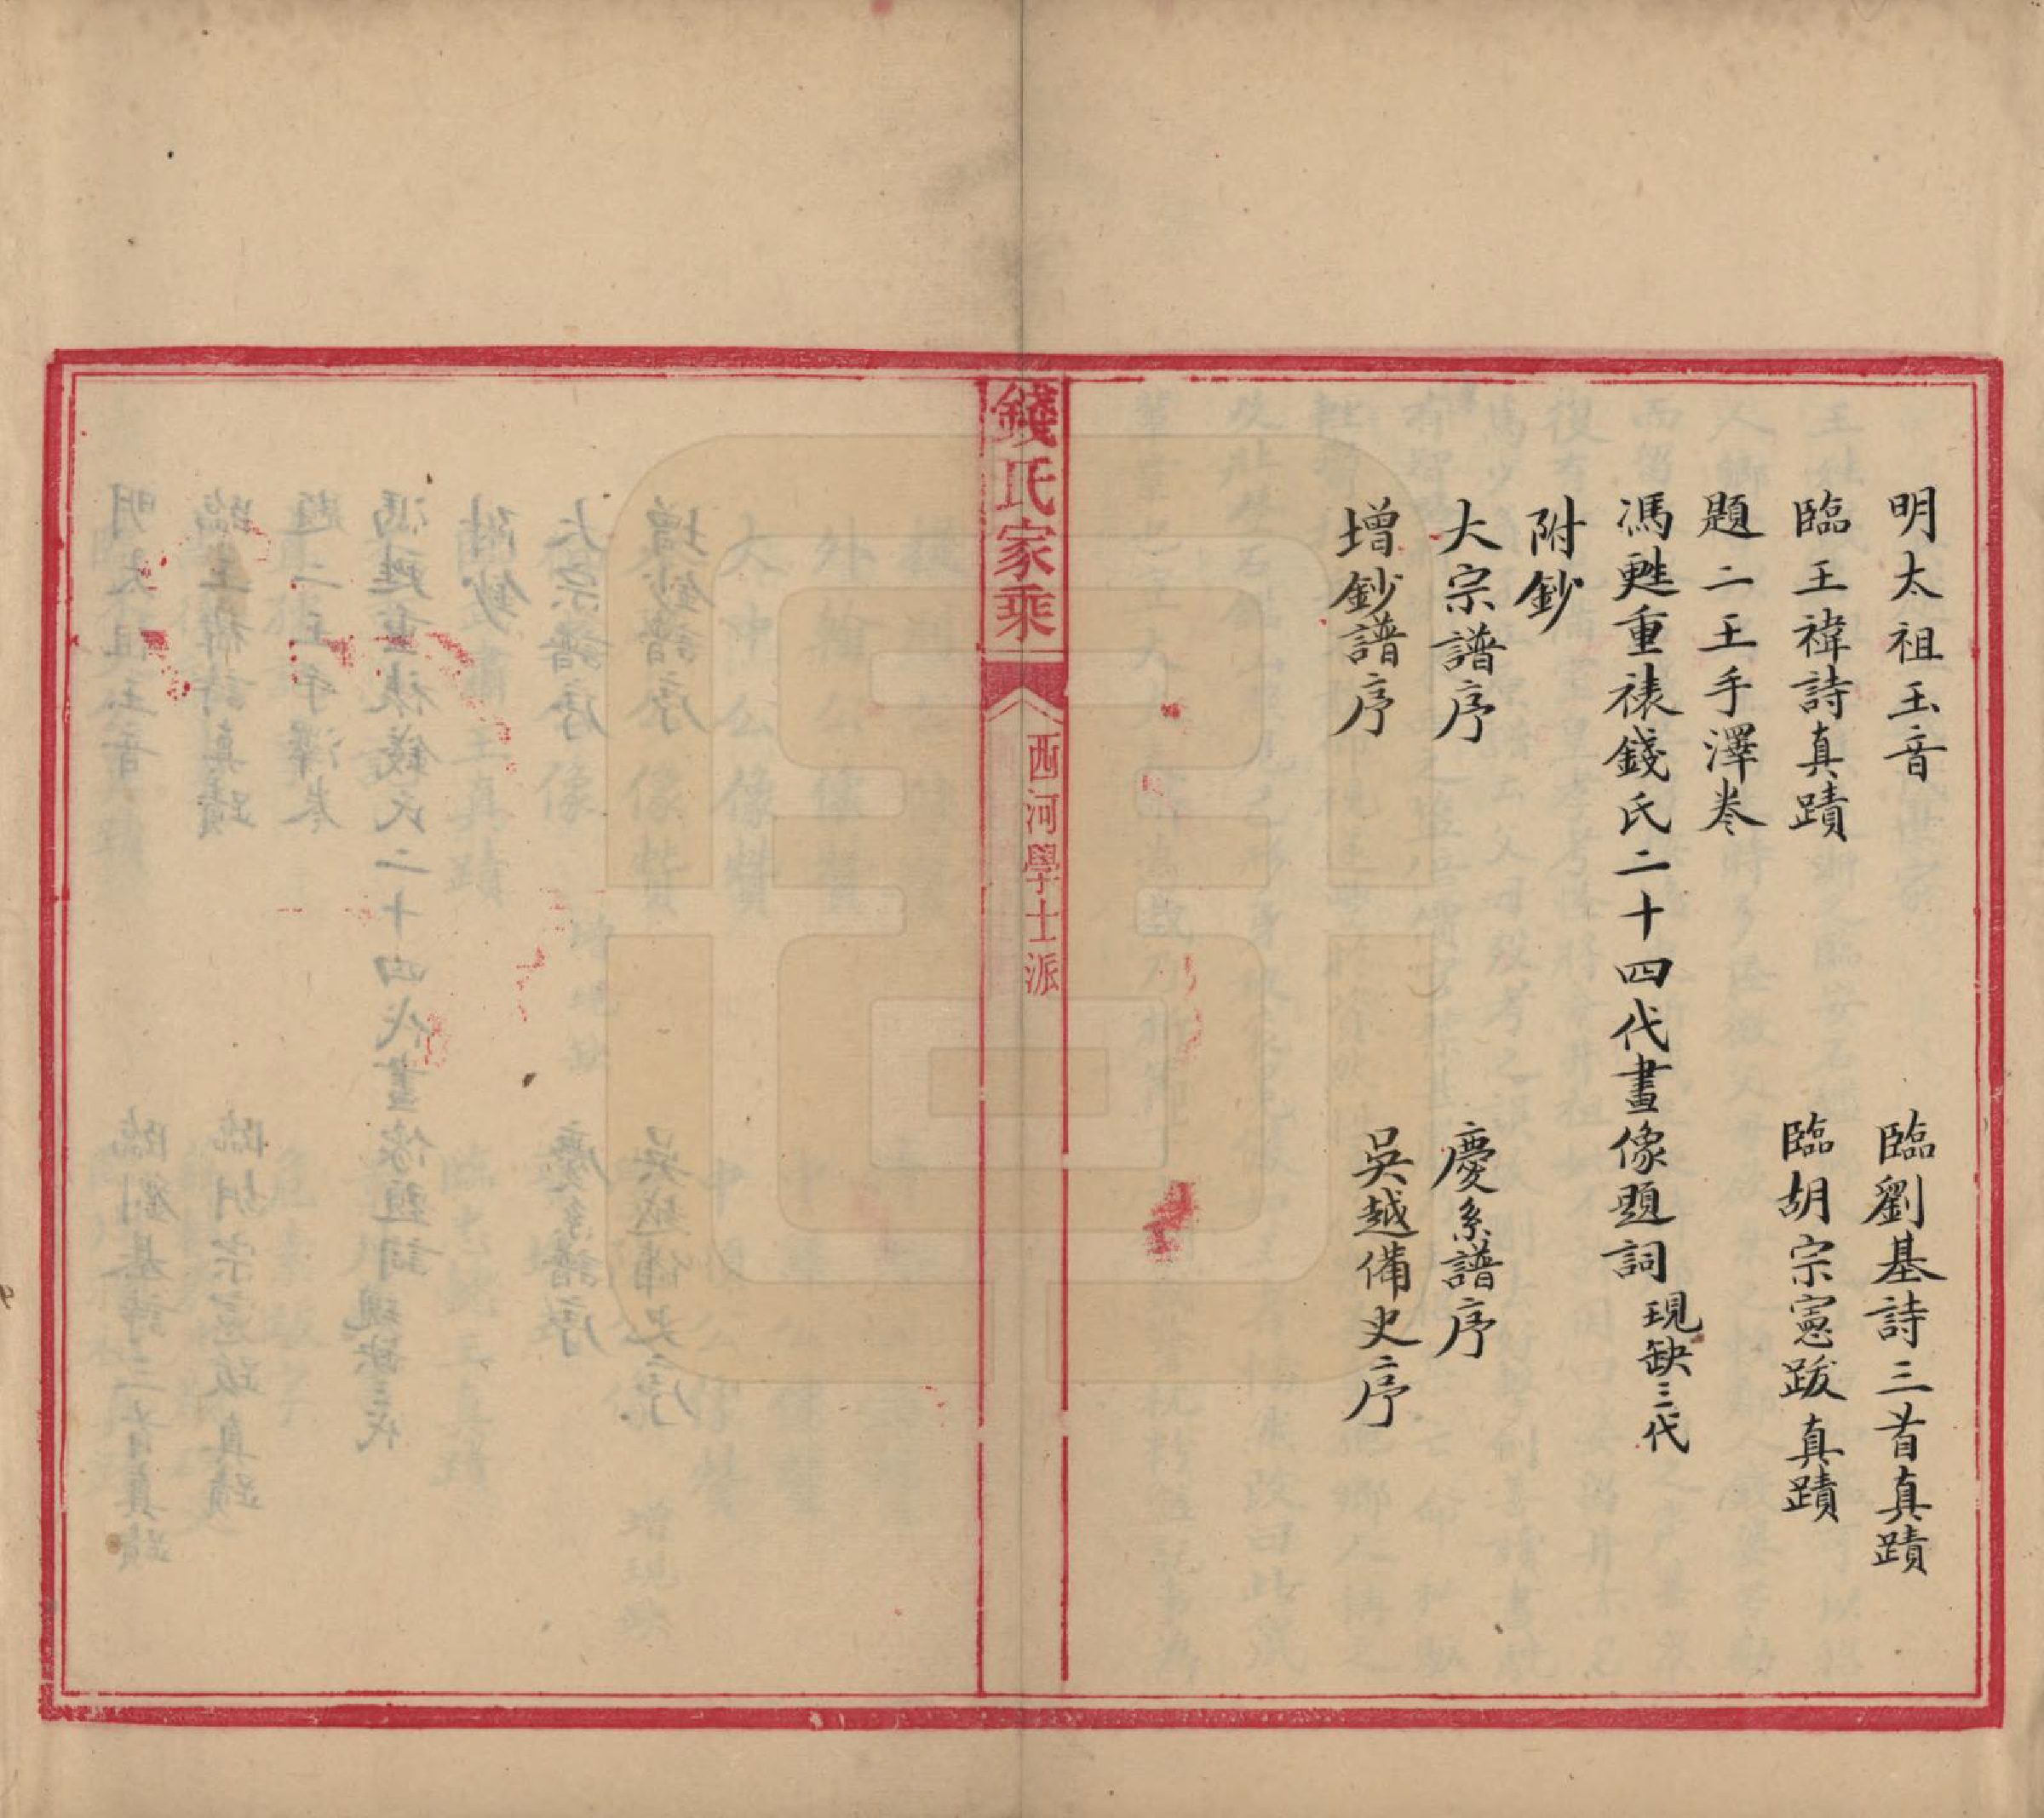 明太祖玉音　臨劉基詩三首真蹟
臨王禕詩真蹟　臨胡宗憲跋真蹟
題二王手澤卷
馮甦重裱錢氏二十四代畫像題詞 現缺三代
附鈔
大宗譜序　慶系譜序
增鈔譜序　吳越備史序
錢氏家乘
西河學士派